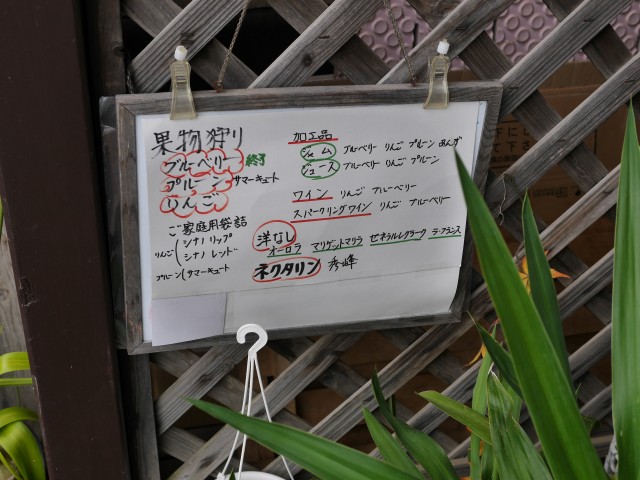 果物狩り
ブルーベリー 終了
プルーン サマーキュート
りんご
ご家庭用袋詰
りんご シナノリップ
シナノレッド
プルーン サマーキュート
加工品
ジャム ブルーベリー りんご プルーン あんず
ジュース ブルーベリー りんご プルーン
ワイン りんご ブルーベリー
スパークリングワイン りんご ブルーベリー
洋なし
オーロラ マリゲットマリラ ゼネラルレクラーク ラ・フランス
ネクタリン 秀峰